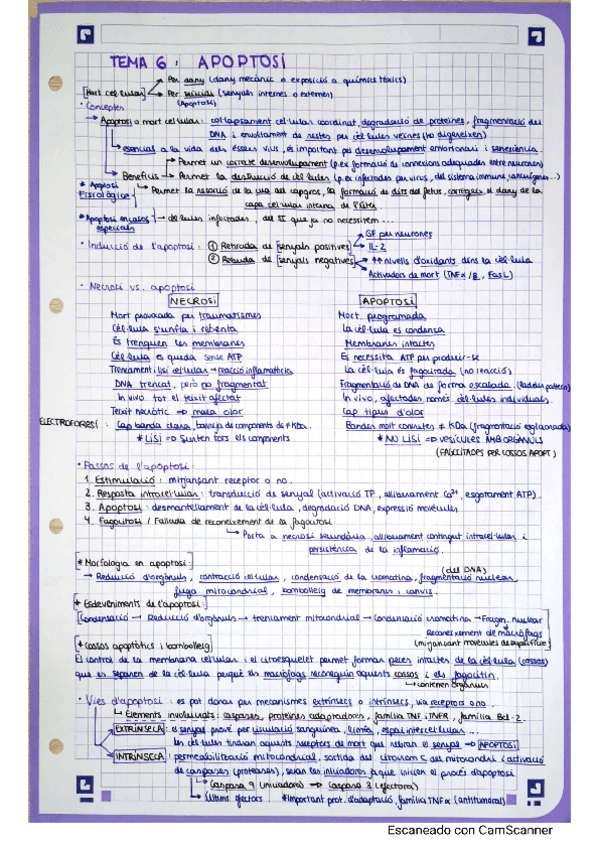 TEMA 6: APOPTOSI
Mort cel·lular
Per dany (dany mecànic o exposició a químics tòxics)
Per suïcidi (senyals internes o externes)
(Apoptosi)
· Conceptes
Apoptosi o mort cel·lular: col·lapsament cel·lular coordinat, degradació de proteïnes, fragmentació del
DNA i envoltment de restes per cèl·lules veïnes (ho digereixen)
essencial a la vida dels éssers vius, és important pel desenvolupament embrionari i senescència.
Beneficis
Permet un correcte desenvolupament (p.ex formació de connexions adequades entre neurones)
Permet la destrucció de cèl·lules (p.ex infectades per virus, del sistema immune, cancerígenes...)
* Apoptosi Fisiològica
Permet la regació de la cua als capgros, la formació de dits del fetus, corregeix el dany de la
capa cel·lular interna de
* Apoptosi en casos especials → cèl·lules infectades, del SI que ja no necessitem...
· Inducció de l'apoptosi: ① Retirada de senyals positives
GF per neurones
IL-2
② Rebuda de senyals negatives
↑↑ nivells d'oxidants dins la cèl·lula
Activadors de mort (TNFα/β, FasL)
· Necrosi vs. apoptosi
NECROSI APOPTOSI
Mort provocada per traumatismes Mort programada
Cèl·lula s'unfla i rebenta La cèl·lula es condensa
Es trenquen les membranes Membranes intactes
Cèl·lula es queda sense ATP Es necessita ATP per produir-se
Trencament lisi cel·lular → reacció inflamatòria La cèl·lula és fagocitada (no reacció)
DNA trencat, però no fragmentat Fragmentació de DNA de forma escalada (ladder pattern)
In vivo tot el teixit afectat In vivo, afectades només cèl·lules individuals.
Teixit necròtic → mala olor Cap tipus d'olor
ELECTROFORESI: Cap banda clara, barreja de components de ≠ KDa. Bandes molt concretes ≠ KDa (fragmentació esglaonada)
* LISI ⇒ Surten fora els components * NO LISI ⇒ VESÍCULES AMB ORGÀNULS
(FAGOCITADES PER COSSOS APOPT.)
· Passos de l'apoptosi:
1. Estimulació: mitjançant receptor o no.
2. Resposta intracel·lular: transducció de senyal (activació TP, alliberament Ca²⁺, esgotament ATP).
3. Apoptosi: desmantellament de la cèl·lula, degradació DNA, expressió molècules.
4. Fagocitosi / Fallada de reconeixement de la fagocitosi
Porta a necrosi secundària, alliberament contingut intracel·lular i
persistència de la inflamació.
* Morfologia en apoptosi:
(del DNA)
→ Reducció d'orgànuls, contracció cel·lular, condensació de la cromatina, fragmentació nuclear,
fuga mitocondrial, bombolleig de membranes i canvis.
* Esdeveniments de l'apoptosi:
Condensació → Reducció d'orgànuls → trencament mitocondrial → condensació cromatina → Fragm. nuclear
Reconeixement de macròfags
(mitjançant molècules de superfície)
* Cossos apoptòtics i bombolleig
El control de la membrana cel·lular i el citoesquelet permet formar peces intactes de la cèl·lula (cossos)
que es separen de la cèl·lula perquè els macròfags reconeguin aquests cossos i els fagocitin.
contenen orgànuls
· Vies d'apoptosi: es pot donar per mecanismes extrínsecs o intrínsecs, via receptors o no...
Elements involucrats: caspases, proteïnes adaptadores, família TNF i TNFR, família Bcl-2.
EXTRÍNSECA: el senyal prové per circulació sanguínea, limfa, espai intercel·lular...
Les cèl·lules tindran aquests receptors de mort que rebran el senyal → APOPTOSI
INTRÍNSECA: permeabilització mitocondrial, sortida del citocrom C del mitocondri i activació
de caspases (proteases), seran les iniciadores perquè iniciem el procés d'apoptosi
Caspasa 9 (iniciadora) ⇒ Caspasa 3 (efectora)
últims efectors * Important prot. d'adaptació, família TNFα (antitumoral)
Escaneado con CamScanner